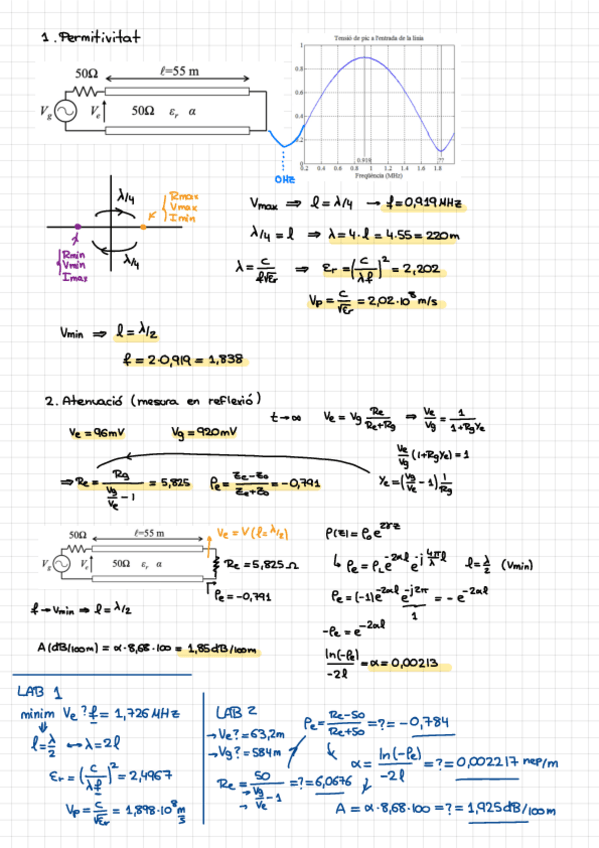 1. Permitivitat
Tensió de pic a l'entrada de la línia
1
0.8
0.6
0.4
0.2
0.2 0.4 0.6 0.8 1 1.2 1.4 1.6 1.8
0.919
Freqüència (MHz)
0Hz
50Ω
ℓ=55 m
Vg
Ve
50Ω εr α
λ/4
Rmax
Vmax
Imin
λ/4
Rmin
Vmin
Imax
Vmax ⇒ l = λ/4 → f = 0,919 MHz
λ/4 = l ⇒ λ = 4·l = 4·55 = 220m
λ = c/(f√εr) ⇒ εr = (c/(λf))² = 2,202
Vp = c/√εr = 2,02·10⁸ m/s
Vmin ⇒ l = λ/2
f = 2·0,919 = 1,838
2. Atenuació (mesura en reflexió)
t→∞ Ve = Vg Re/(Re+Rg) ⇒ Ve/Vg = 1/(1+RgYe)
Ve = 96mV Vg = 920mV
Ve/Vg (1+RgYe) = 1
Ye = (Vg/Ve - 1) 1/Rg
⇒ Re = Rg/(Vg/Ve - 1) = 5,825 ρe = (Ze-Z0)/(Ze+Z0) = -0,791
Ve = V(l=λ/2)
50Ω
ℓ=55 m
Vg
Ve
50Ω εr α
Re = 5,825Ω
ρe = -0,791
ρ(z) = ρ0 e^2γz
↳ ρe = ρL e^-2αl e^-j(4π/λ)l l = λ/2 (Vmin)
ρe = (-1) e^-2αl e^-j2π = -e^-2αl
1
-ρe = e^-2αl
ln(-ρe)/-2l = α = 0,00213
f → Vmin ⇒ l = λ/2
A(dB/100m) = α·8,68·100 = 1,85dB/100m
LAB 1
minim Ve ? f = 1,726 MHz
l = λ/2 ↔ λ = 2l
εr = (c/(λf))² = 2,4967
Vp = c/√εr = 1,898·10⁸ m/s
LAB 2
→ Ve? = 63,2m
→ Vg? = 584m
Re = 50/(Vg/Ve - 1) = ? = 6,0676
ρe = (Re-50)/(Re+50) = ? = -0,784
α = ln(-ρe)/-2l = ? = 0,002217 nep/m
A = α·8,68·100 = ? = 1,925 dB/100m